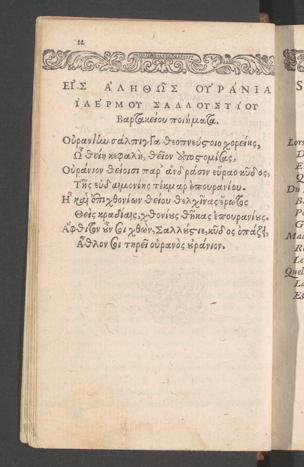 12
ΕΙΣ ΑΛΗΘΩΣ ΟΥΡΑΝΙΑ
ΓΛΕΡΜΟΥ ΣΑΛΛΟΥΣΤΙΟΥ
Βαρτακείου ποιήματα.
Οὐρανίαν σάλπιγγα θεοπνεύστοιο χορείης,
Ὦ θείη κεφαλὴ, θεῖον
Οὐράνιον θείοισι παρ' ἀνδράσιν εὕραο κῦδος,
Τῆς εὐδαιμονίης τέκμαρ ἐπουρανίου.
Η καὶ ἐπιχθονίων θείου θελχίνας ἔρωτος
Θεὶς κραδίαις, χθονίους θῆκας ἐπουρανίους.
Ἄφθιτον οὖν σοι χθὼν, Σαλλύστιε, κῦδος ὀπάζει
Ἆθλον σοι τηρεῖ οὐρανὸς οὐράνιον.
S
Lors
D
E
Q
Du
B
P
G
Mai
R
Le
Et
Quel
La
Es